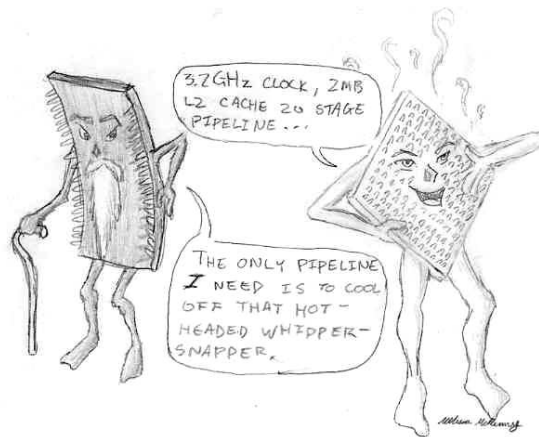 3.2GHz CLOCK, 2MB
L2 CACHE 20 STAGE
PIPELINE...
THE ONLY PIPELINE
I NEED IS TO COOL
OFF THAT HOT-
HEADED WHIPPER-
SNAPPER.
Melissa